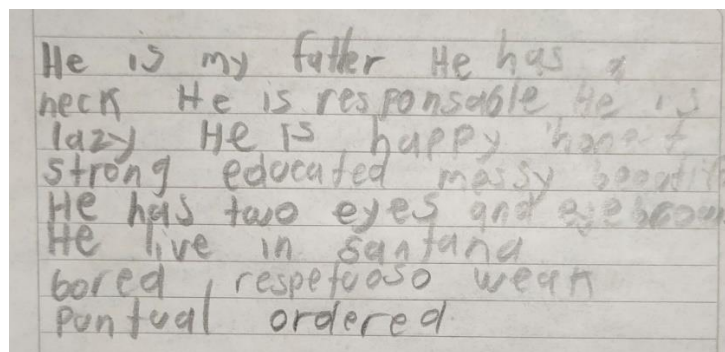 He is my father He has a
neck He is responsable He is
lazy He is happy honest
strong educated messy
He has two eyes and
He live in santana
bored, respetuoso weak
puntual ordered